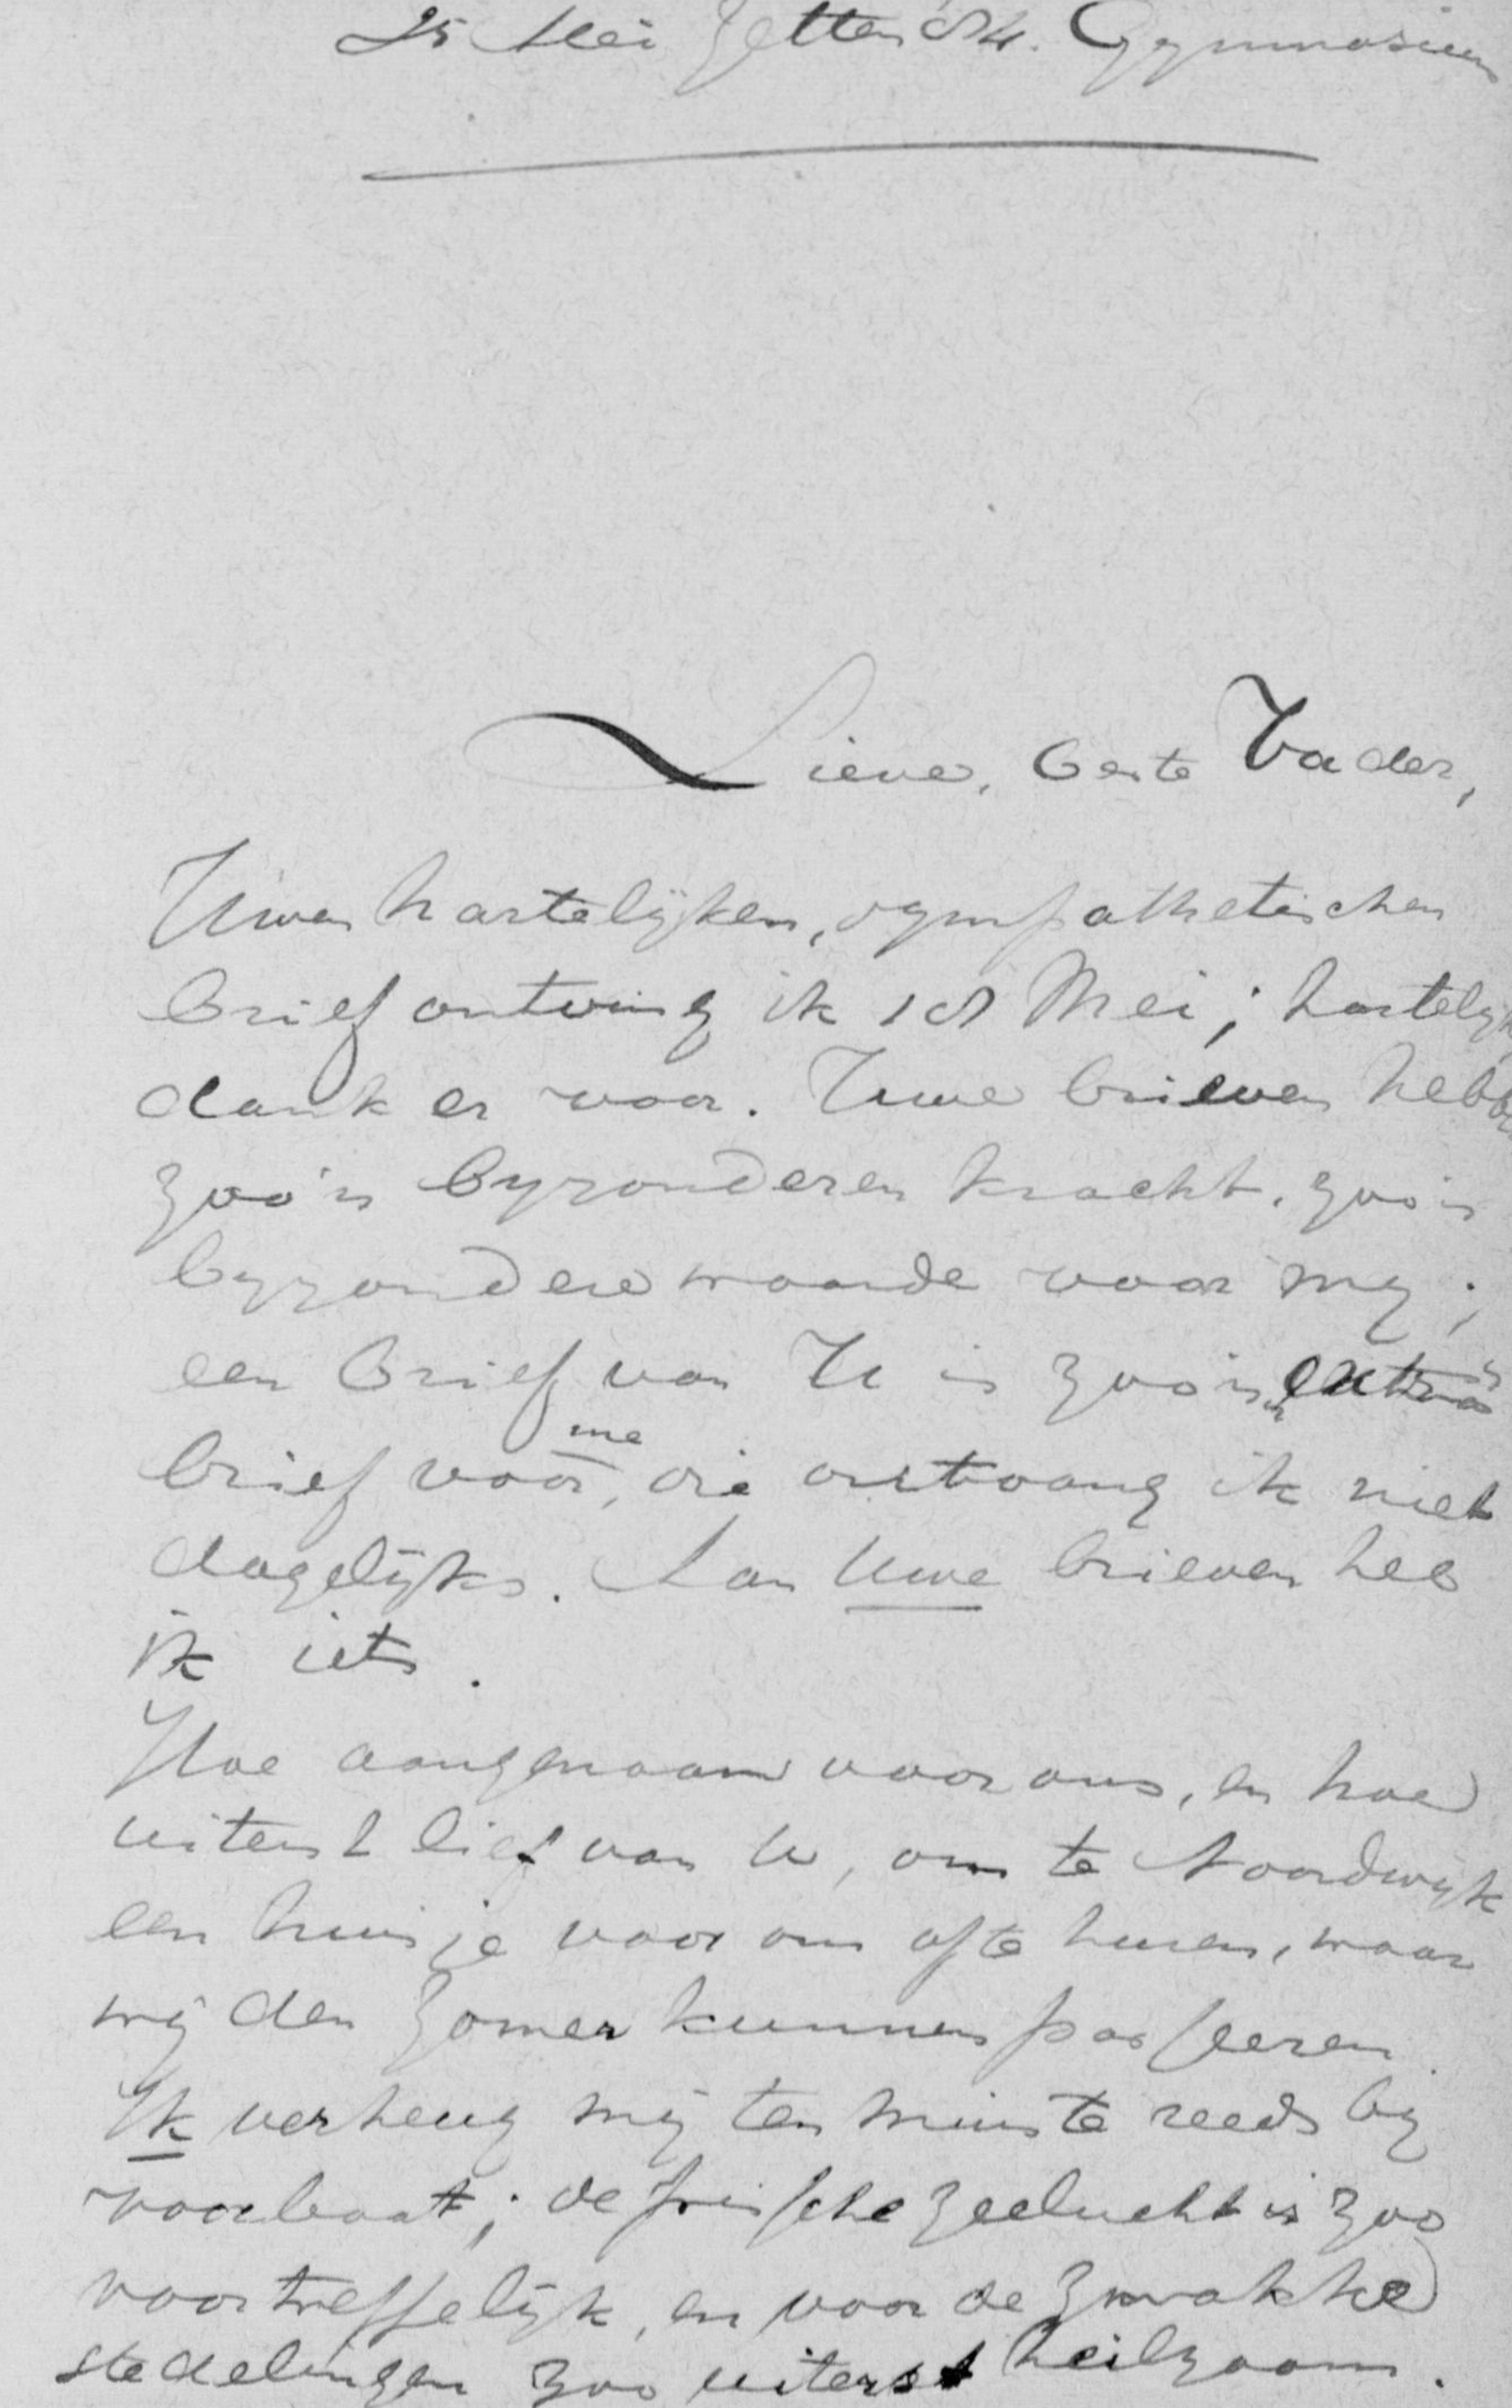 25 Mei Zetten 84. Gymnasium
Lieve, beste Vader,
Uwen hartelijken, sympathetischen
brief ontving ik 18 Mei; hartelijk
dank er voor. Uwe brieven hebben
zoo'n byzonderen kracht, zoo'n
byzondere waarde voor my;
een brief van U is zoo'n extra
brief voor me, die ontvang ik niet
dagelijks. Aan Uwe brieven heb
ik iets.
Hoe aangenaam voor ons, en hoe
uiterst lief van U, om te Noordwijk
een huisje voor ons af te huren, waar
wij den Zomer kunnen passeeren.
Ik verheug mij ten minste reeds by
voorbaat; de frissche Zeelucht is zoo
voortreffelijk, en voor de zwakke
stedelingen zoo uiterst heilzaam.